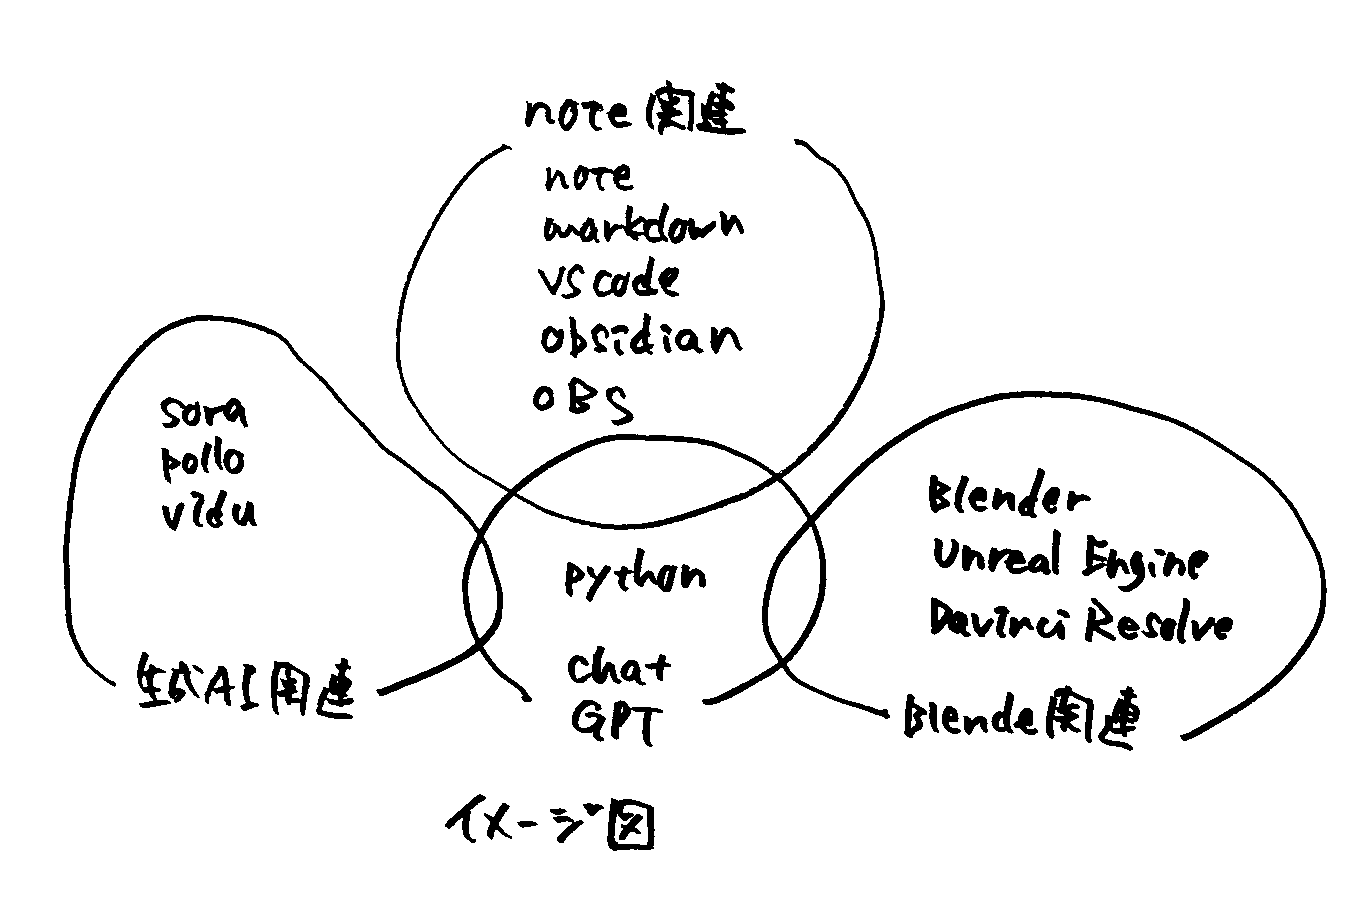 note関連
note
markdown
vscode
obsidian
OBS
sora
pollo
vidu
生成AI関連
python
chat
GPT
Blender
Unreal Engine
Davinci Resolve
Blende関連
イメージ図